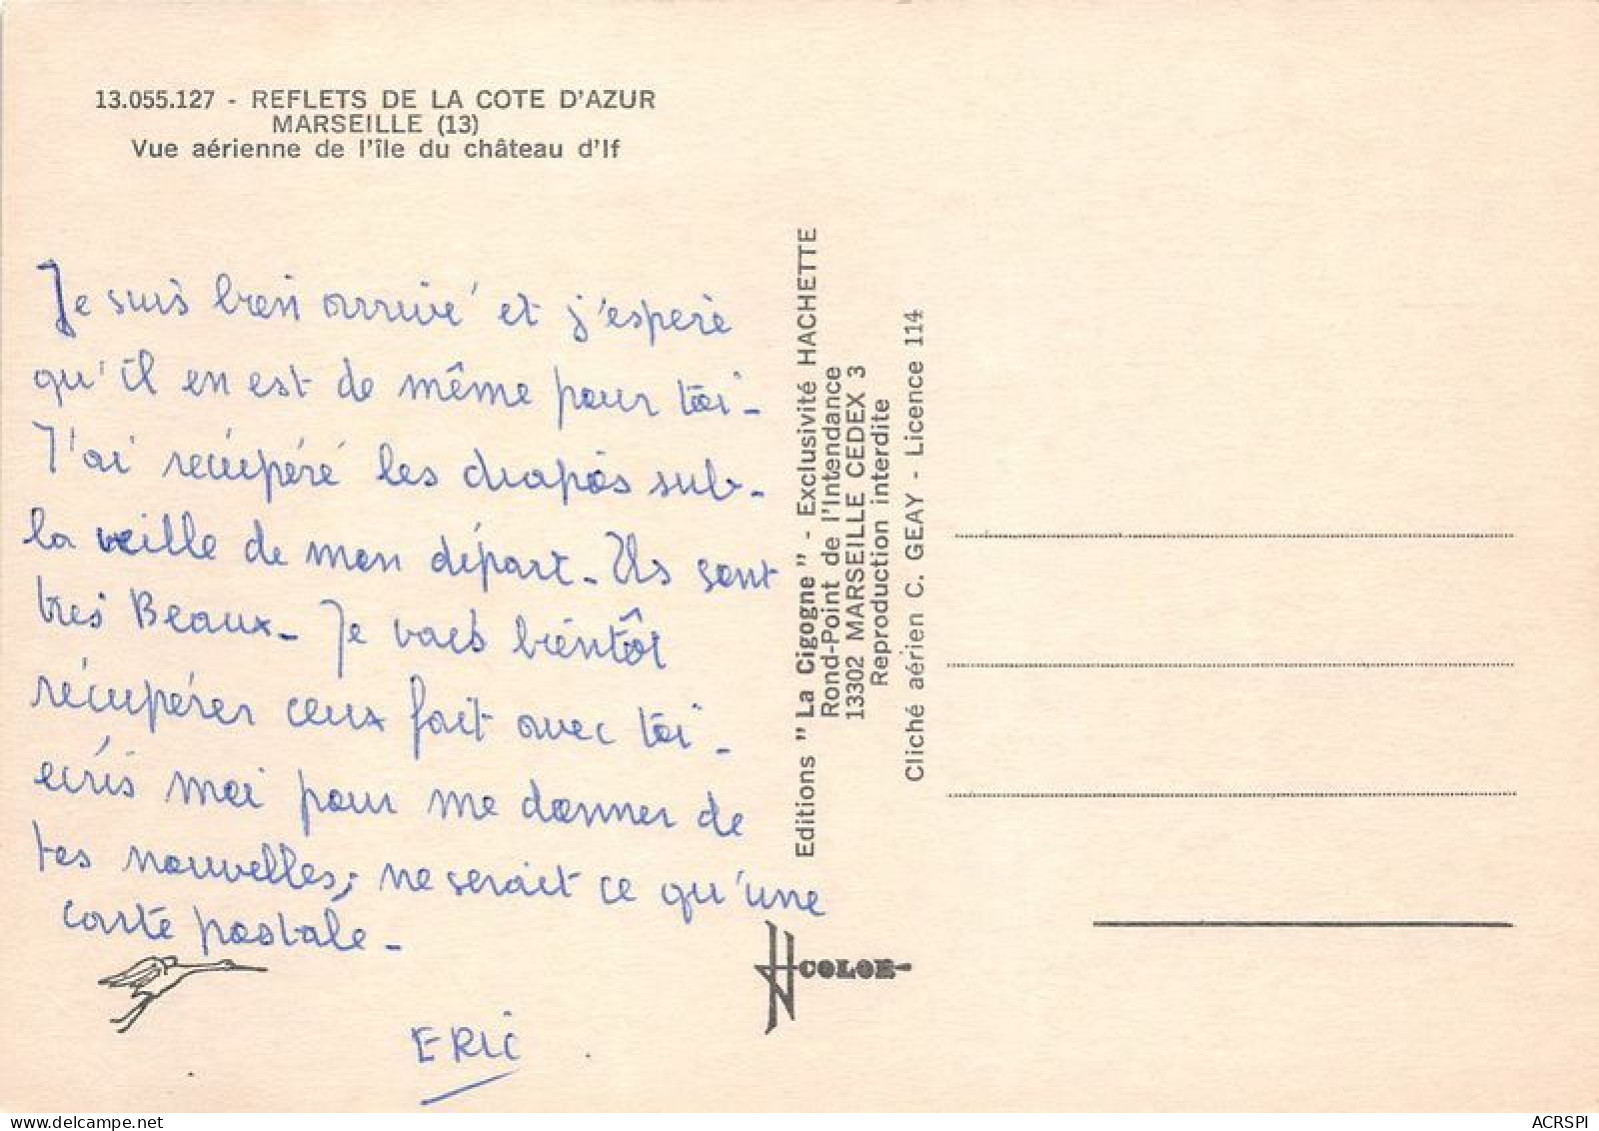 13.055.127 - REFLETS DE LA COTE D'AZUR
MARSEILLE (13)
Vue aérienne de l'île du château d'If
Je suis bien arrivé et j'espère
qu'il en est de même pour toi -
J'ai récupéré les drapés sub-
la veille de mon départ - Ils sont
très Beaux - Je vais bientôt
récupérer ceux fait avec toi -
écris moi pour me donner de
tes nouvelles, ne serait ce qu'une
carte postale -
ERIC
Editions "La Cigogne" - Exclusivité HACHETTE
Rond-Point de l'Intendance
13302 MARSEILLE CEDEX 3
Reproduction interdite
Cliché aérien C. GEAY - Licence 114
COLOR
delcampe.net
ACRSPI